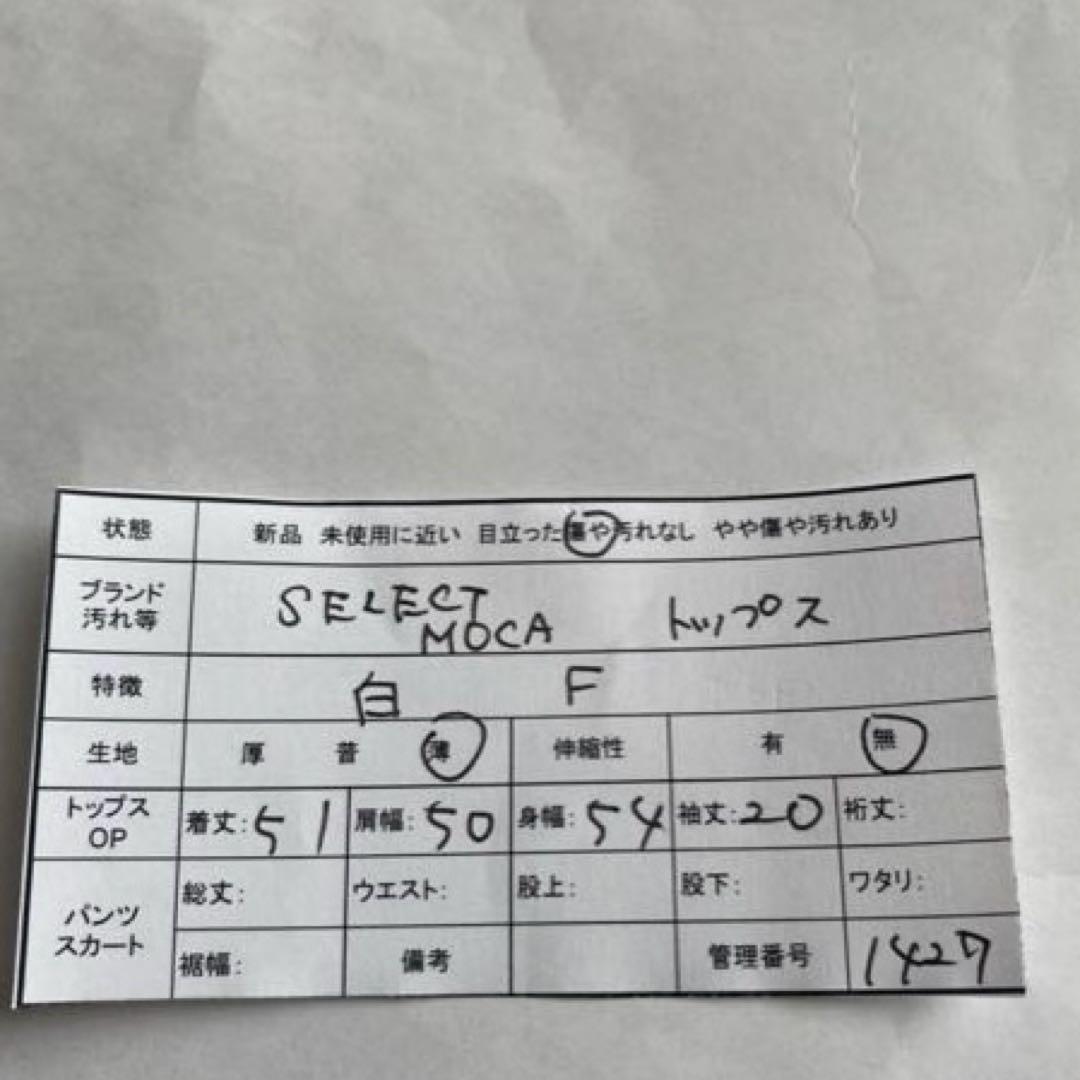 状態 新品 未使用に近い 目立った傷や汚れなし やや傷や汚れあり
ブランド 汚れ等 SELECT MOCA トップス
特徴 白 F
生地 厚 普 薄 伸縮性 有 無
トップス OP 着丈:51 肩幅:50 身幅:54 袖丈:20 裄丈:
パンツ スカート 総丈: ウエスト: 股上: 股下: ワタリ:
裾幅: 備考 管理番号 1427